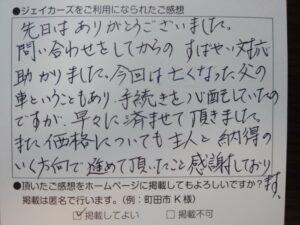 ●ジェイカーズをご利用になられたご感想
先日はありがとうございました。
問い合わせをしてからの すばやい対応
助かりました。今回は亡くなった父の
車ということもあり、手続きを心配していたの
ですが、早々に済ませて頂きました。
また価格についても主人と納得の
いく方向で進めて頂いたこと感謝しており
ます。
●頂いたご感想をホームページに掲載してもよろしいですか？
掲載は匿名で行います。（例：町田市 K様）
☑掲載してよい □掲載不可